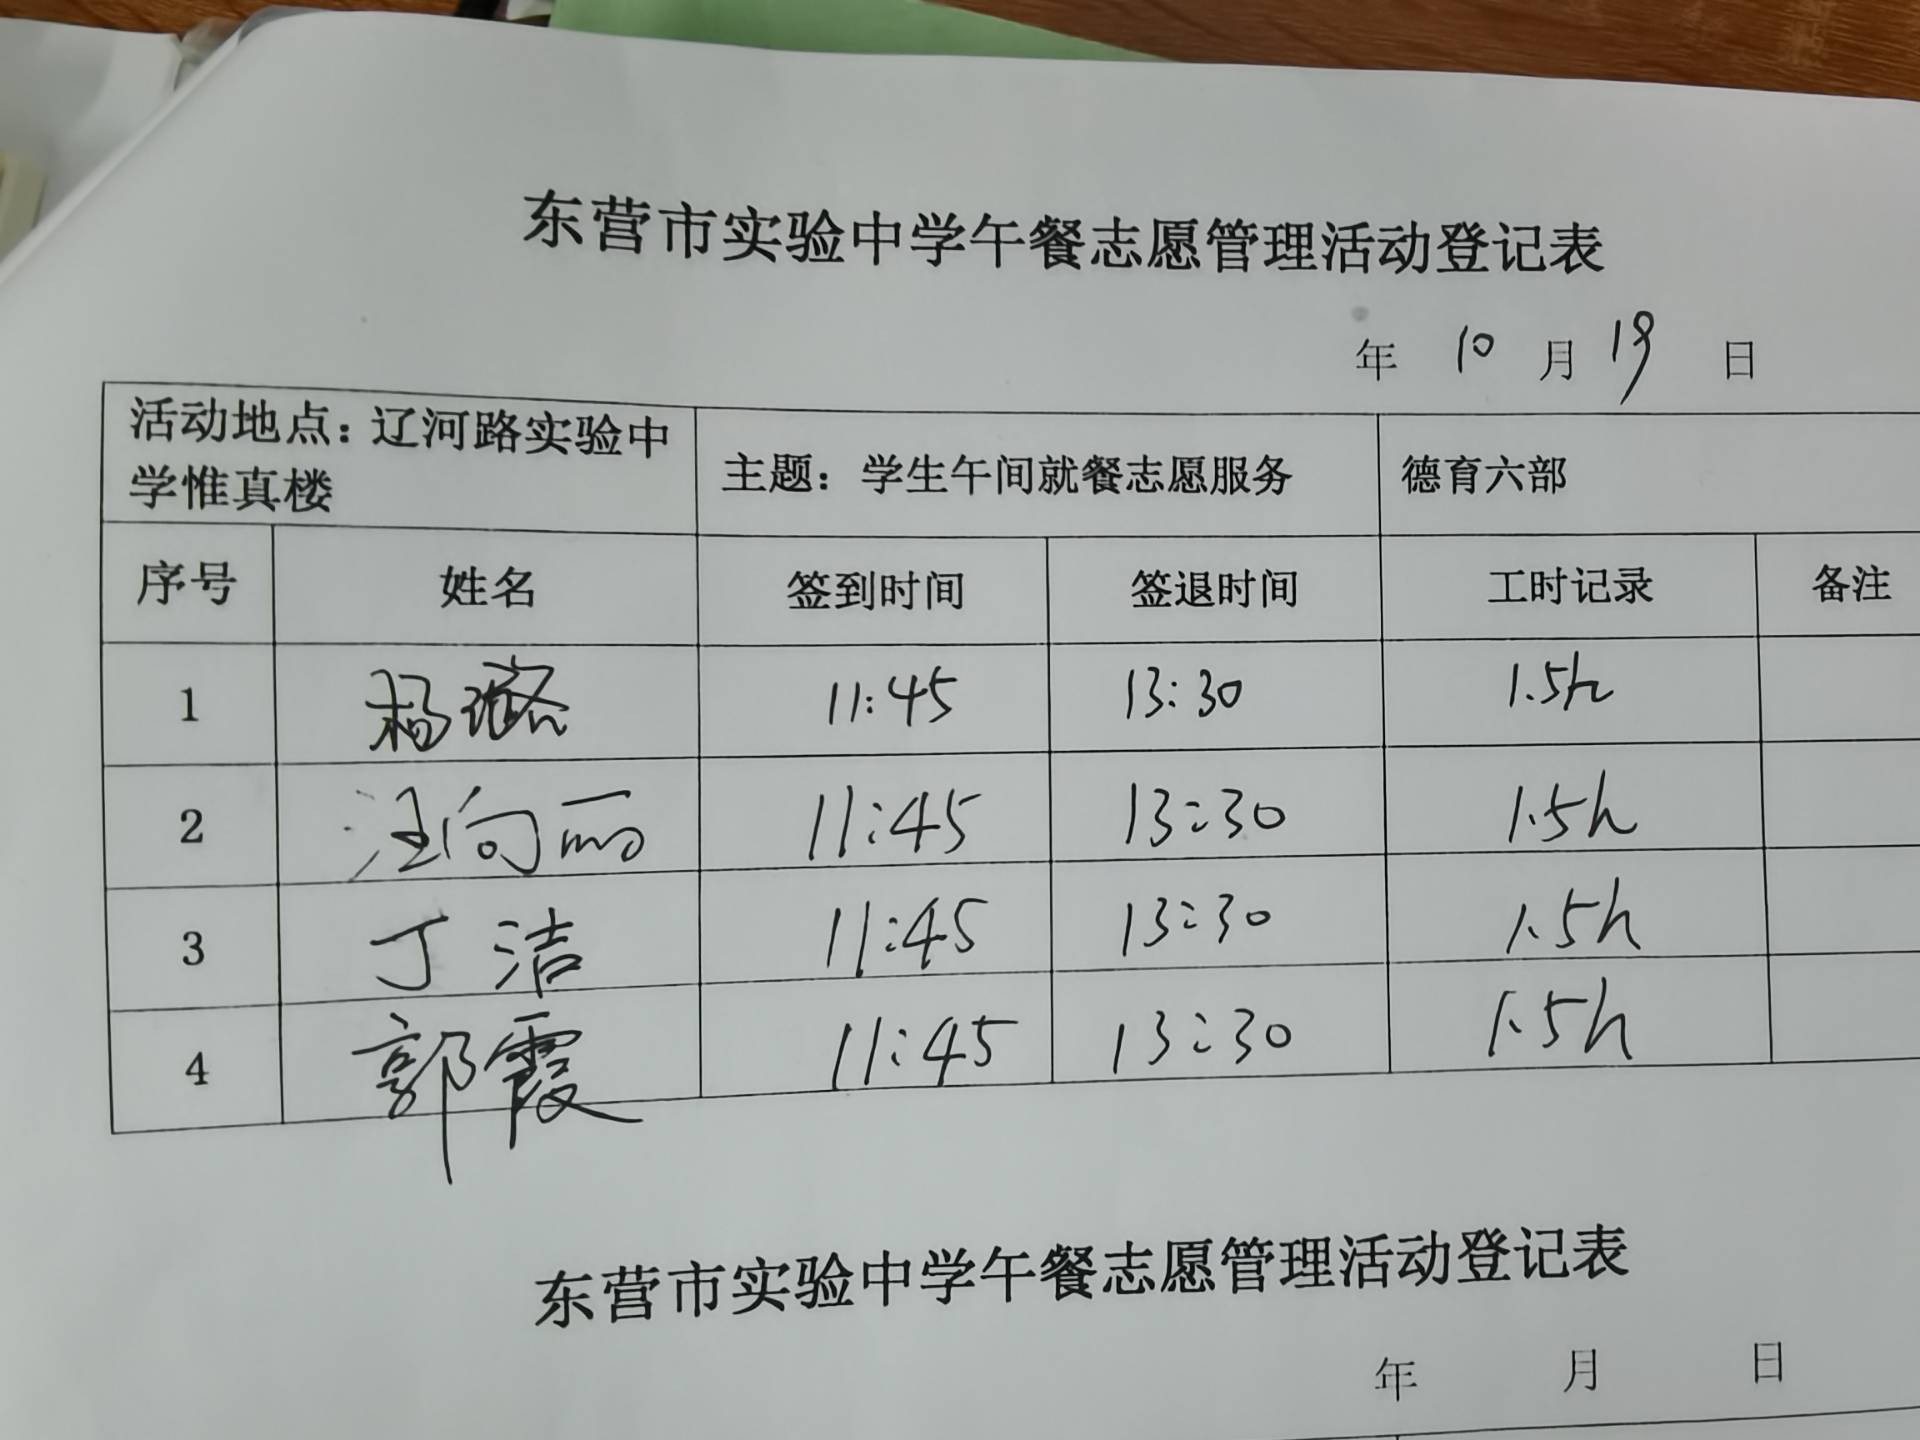 东营市实验中学午餐志愿管理活动登记表
年 10 月 19 日
活动地点：辽河路实验中学惟真楼 主题：学生午间就餐志愿服务 德育六部
序号 姓名 签到时间 签退时间 工时记录 备注
1 杨璐 11:45 13:30 1.5h
2 汪向丽 11:45 13:30 1.5h
3 丁洁 11:45 13:30 1.5h
4 郭霞 11:45 13:30 1.5h
东营市实验中学午餐志愿管理活动登记表
年 月 日